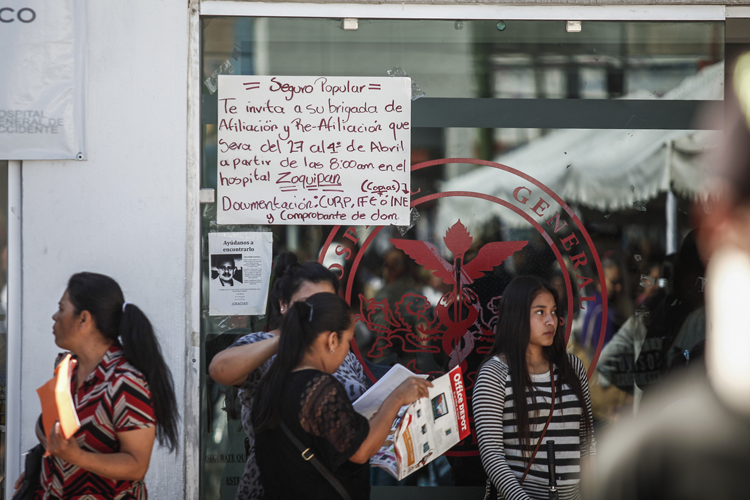 CO
HOSPITAL
GENERAL DE
OCCIDENTE
= Seguro Popular =
Te invita a su brigada de
Afiliación y Re-Afiliación que
sera del 27 al 4º de Abril
a partir de las 8:00am en el
hospital Zoquipan (Copias)
Documentación: CURP, IFE ó INE
y Comprobante de dom
Ayúdanos a
encontrarlo
HOSP
GENERAL
Office DEPOT